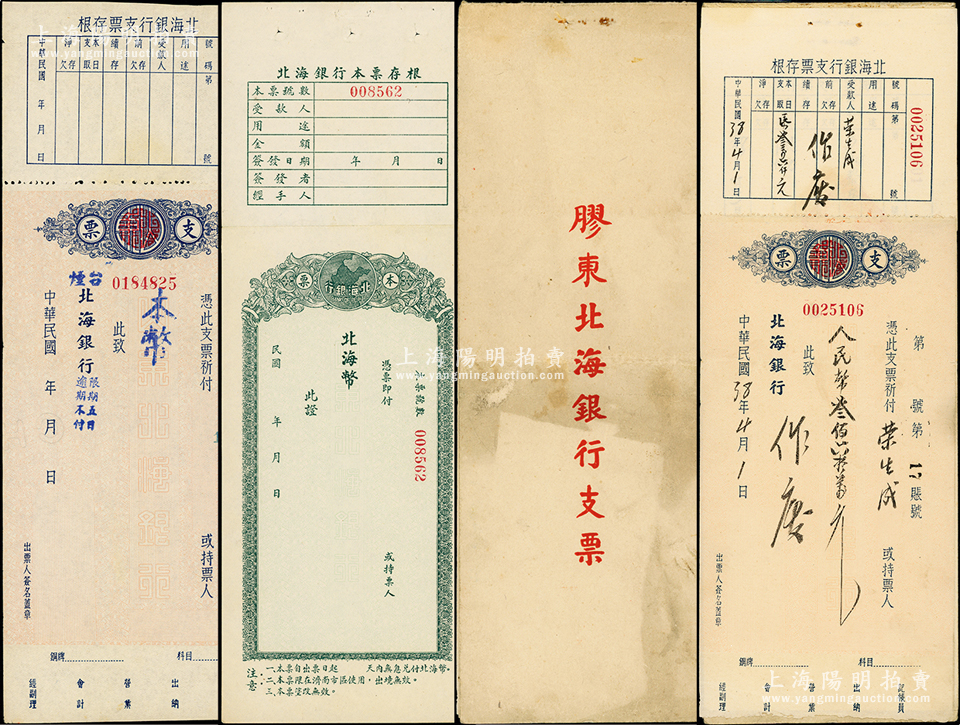 北海銀行支票存根
號碼 第 號
用途
受款人
前存欠
續存
本日支取
淨存欠
中華民國 年 月 日
支票
憑此支票祈付
或持票人
本幣
此致
0184825
煙台
北海銀行
限期五日
逾期不付
中華民國 年 月 日
出票人簽名蓋章
銅牌
科目
經副理
會計
營業
出納
北海銀行本票存根
本票號數 008562
受款人
用途
金額
簽發日期 年 月 日
簽發者
經手人
本票
北海銀行
本票號數 008562
憑票即付
或持票人
北海幣
此證
民國 年 月 日
注意:
一.本票自出票日起 天內無息兌付北海幣。
二.本票限在濟南市區使用,出境無效。
三.本票塗改無效。
膠東北海銀行支票
北海銀行支票存根
0025106
號碼 第 號
用途
受款人 荣生成
前存欠
續存
本日支取
淨存欠
作廢
中華民國38年4月1日
支票
0025106
第 號第 17 賬號
憑此支票祈付 荣生成 或持票人
人民幣叁佰六拾萬元
此致
作廢
北海銀行
中華民國38年4月1日
出票人簽名蓋章
銅牌
科目
經副理
會計
營業
出納
記帳員
上海陽明拍賣
www.yangmingauction.com